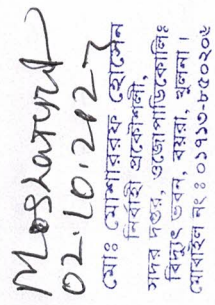 Mosharraf
02.10.2023
মোঃ মোশাররফ হোসেন
নির্বাহী প্রকৌশলী,
সদর দপ্তর, ওজোপাডিকোলিঃ
বিদ্যুৎ ভবন, বয়রা, খুলনা।
মোবাইল নং ঃ ০১৭১৩-৮৫০২০৫